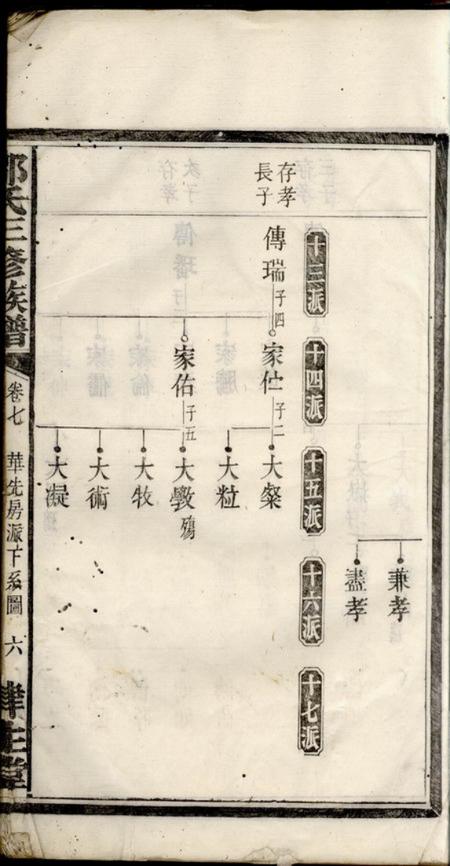 兼孝
盡孝
十三派
十四派
十五派
十六派
十七派
存孝
長子
傳瑞
子四
家仕
子二
大粲
大粒
家佑
子五
大斅
殤
大牧
大術
大凝
氏三修族譜
卷七
華先房派下系圖
六